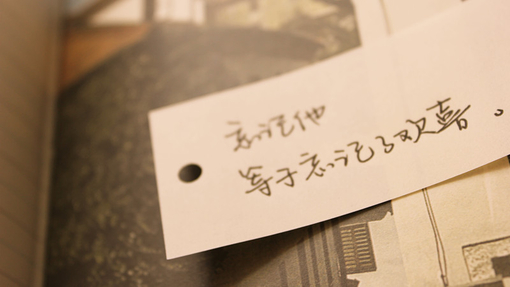 忘记他
等于忘记了欢喜。